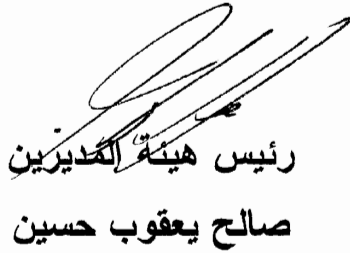 رئيس هيئة المديرين
صالح يعقوب حسين